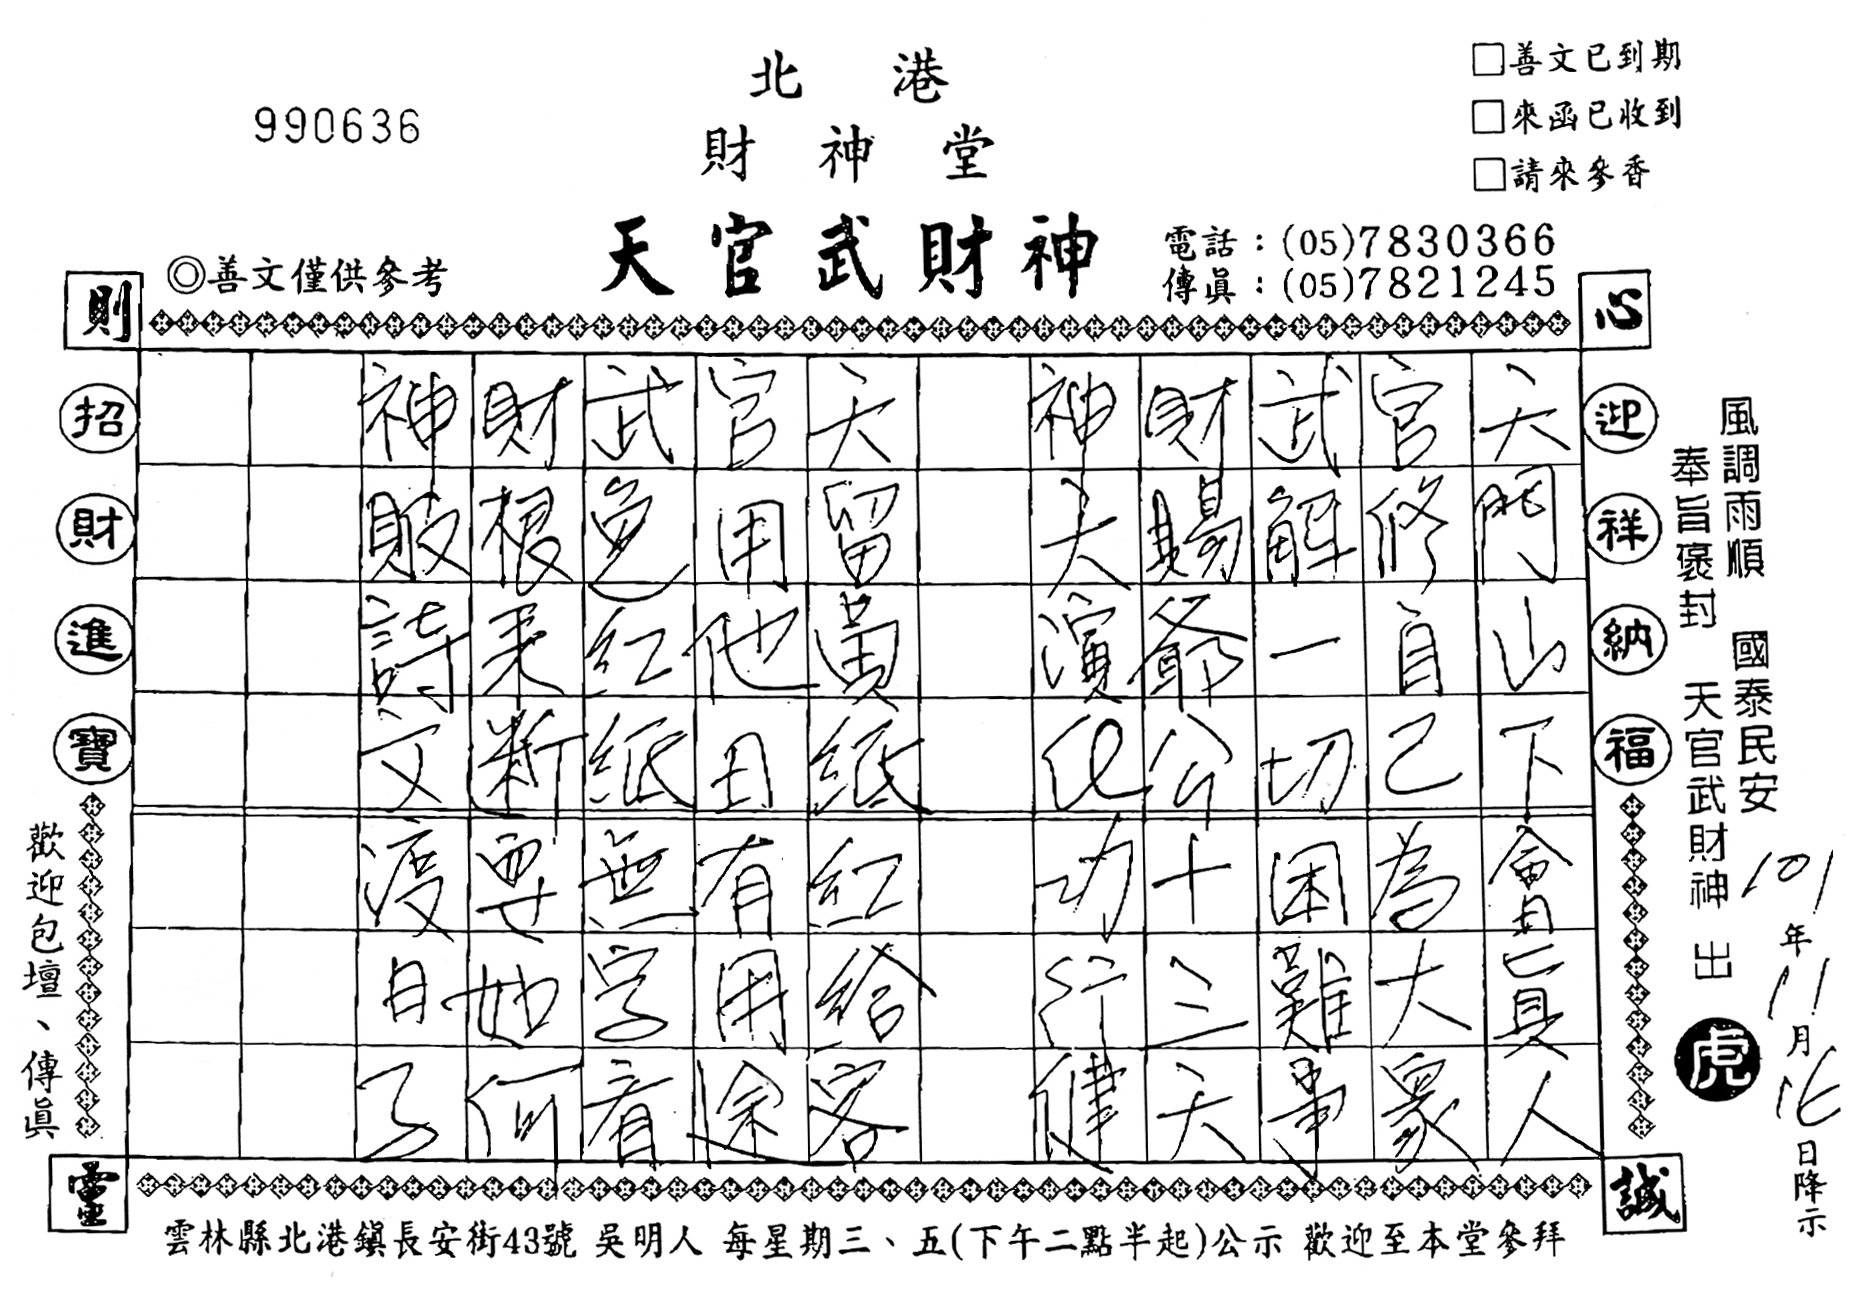 990636
北港
財神堂
天官武財神
□善文已到期
□來函已收到
□請來參香
電話：(05)7830366
傳眞：(05)7821245
◎善文僅供參考
心
誠
則
靈
迎祥納福
招財進寶
風調雨順 國泰民安
奉旨褒封 天官武財神 出
虎
101年11月16日降示
天門山下會眞人
官修自己為大眾
武解一切困難事
財賜爺公十三天
神大演化功行健
天留黃紙紅給客
官用他日有用途
武色紅紙無字看
財根未斷要如何
神敗詩文渡日了
歡迎包壇、傳眞
雲林縣北港鎮長安街43號 吳明人 每星期三、五(下午二點半起)公示 歡迎至本堂參拜